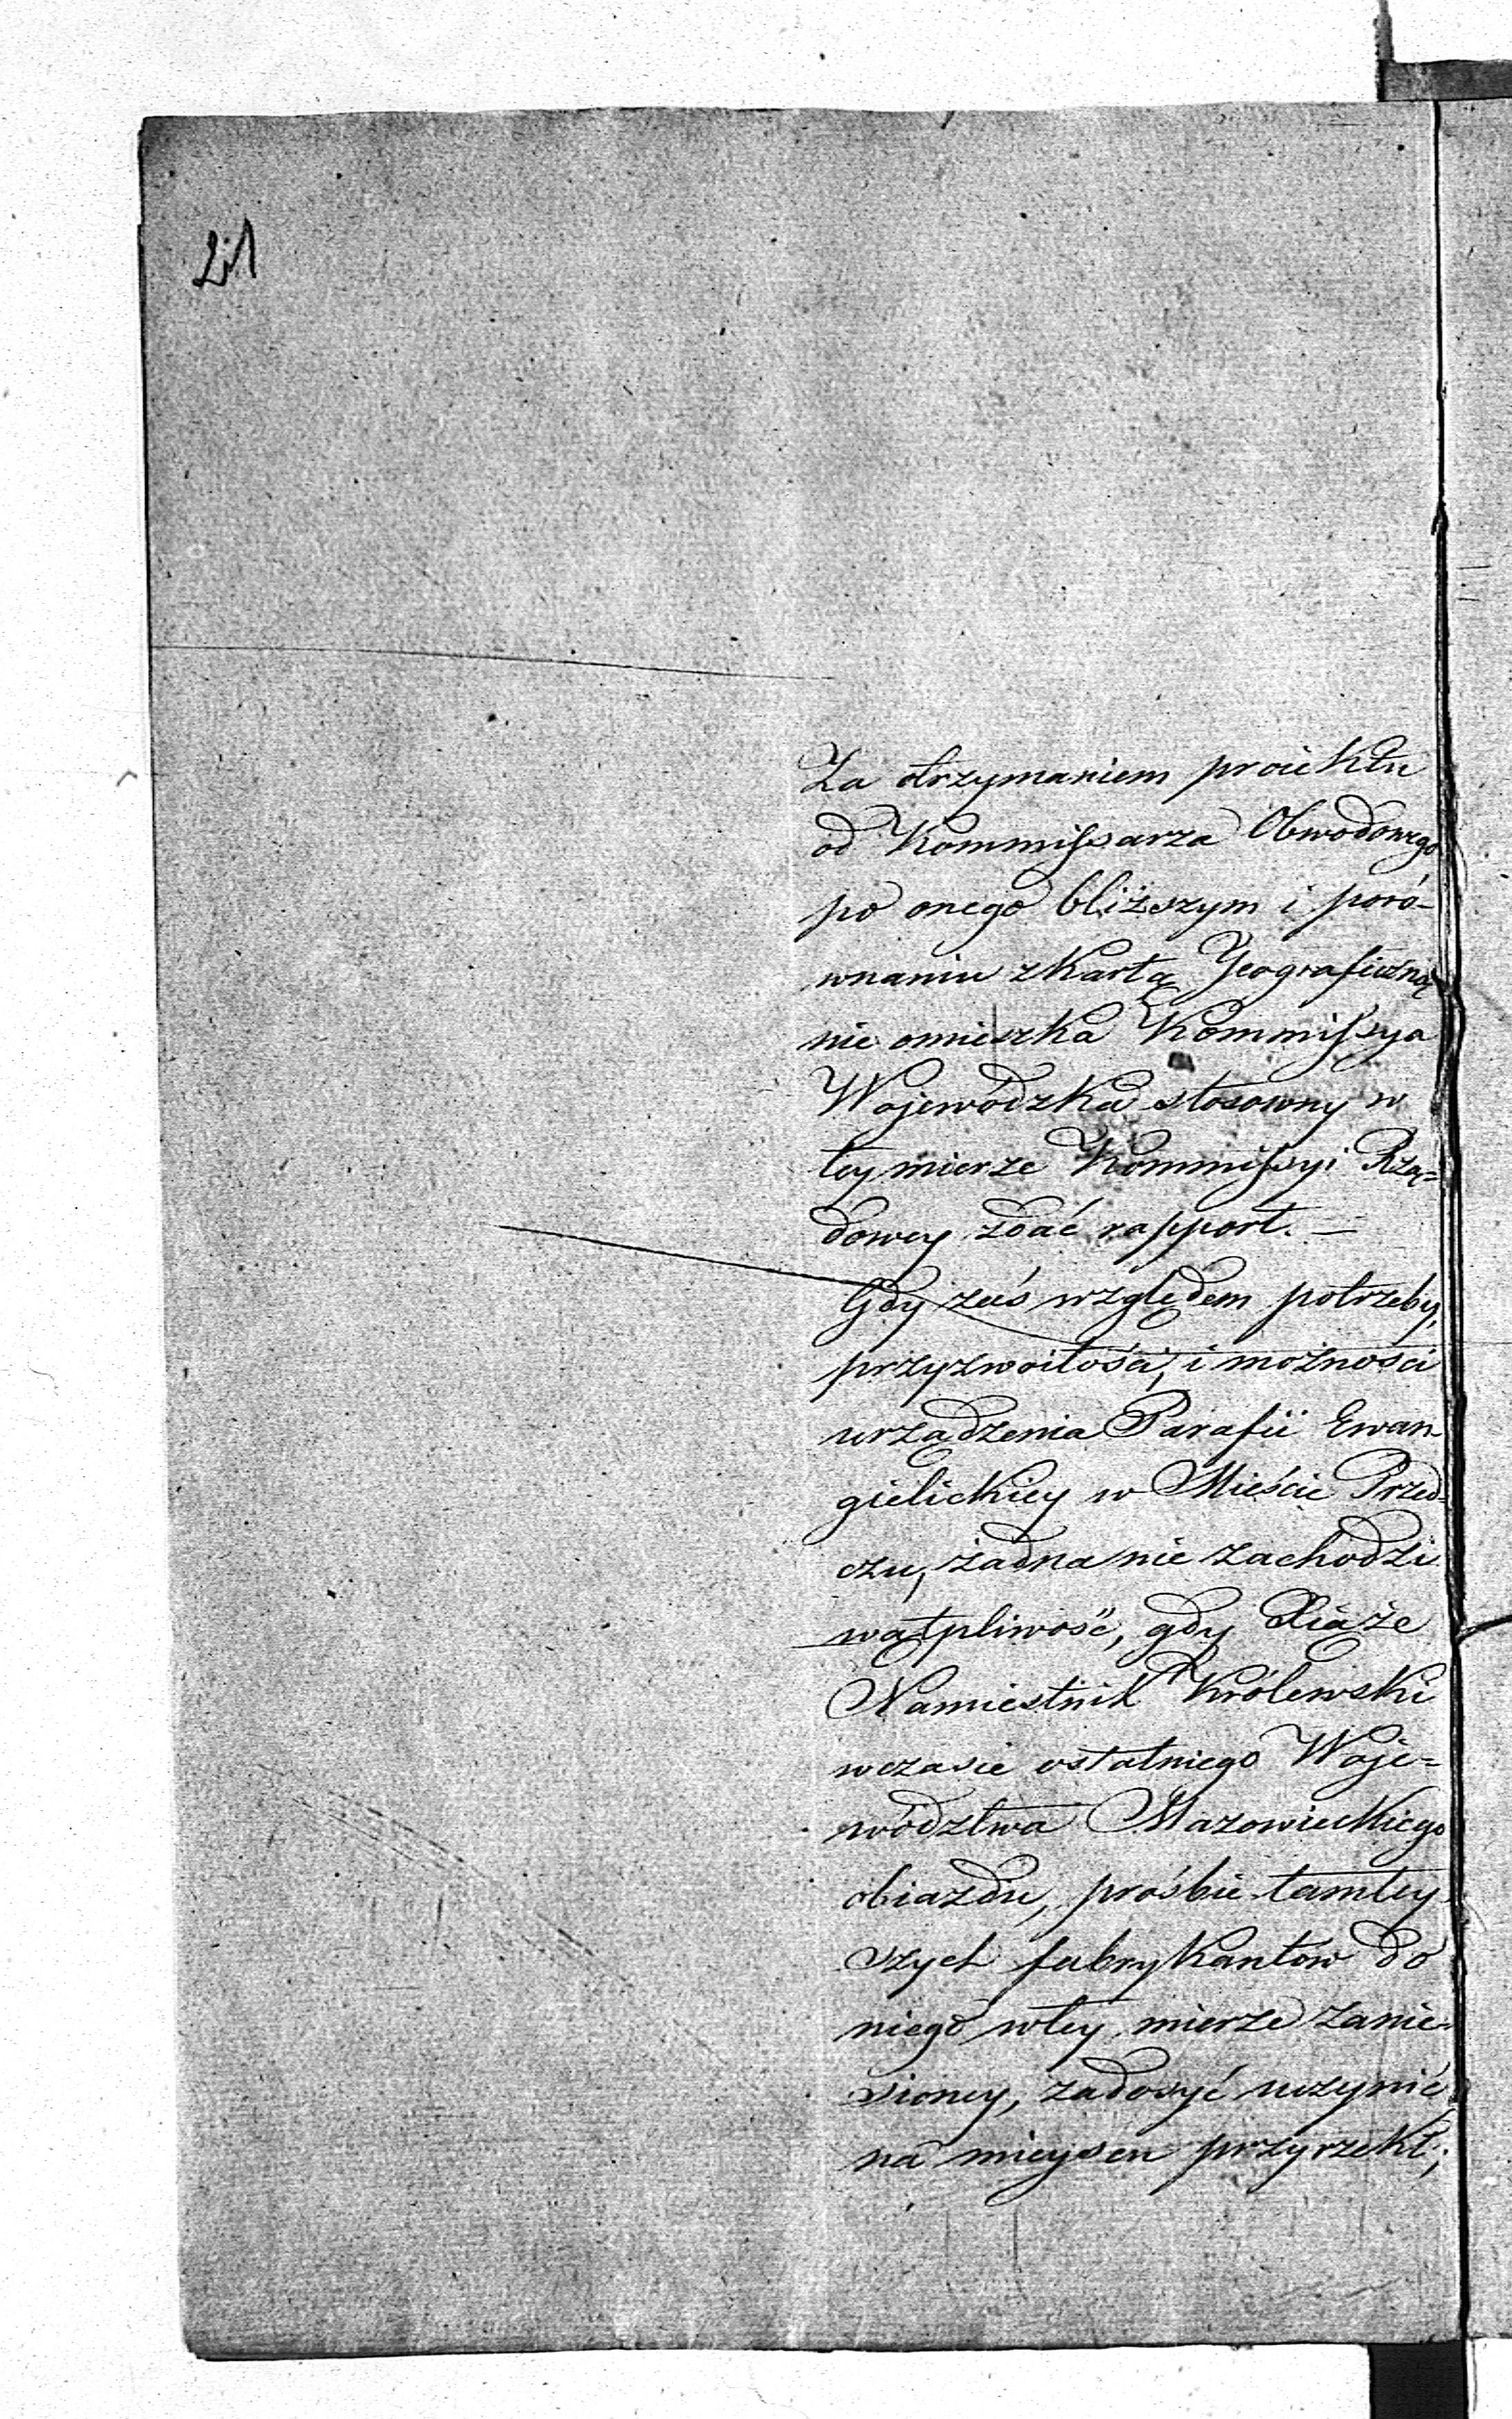 Za otrzymaniem proiektu
od Kommissarza Obwodowego
po onego bliższym i poró-
wnaniu z Kartą Jeograficzną
nie omieszka Kommissya
Wojewódzka stosowny w
tey mierze Kommissyi Rzą=
dowey zdać rapport. —
Gdy zaś względem potrzeby,
przyzwoitości, i możności
urządzenia Parafii Ewan-
gielickiey w Mieście Przed-
czu, żadna nie zachodzi
wątpliwość, gdy Xiąże
Namiestnik Królewski
wczasie ostatniego Woje=
wództwa Mazowieckiego
obiazdu, prośbie tamtey-
szych fabrykantow do
niego wtey mierze zanie-
sioney, zadosyć uczynić
na mieyscu przyrzekł;